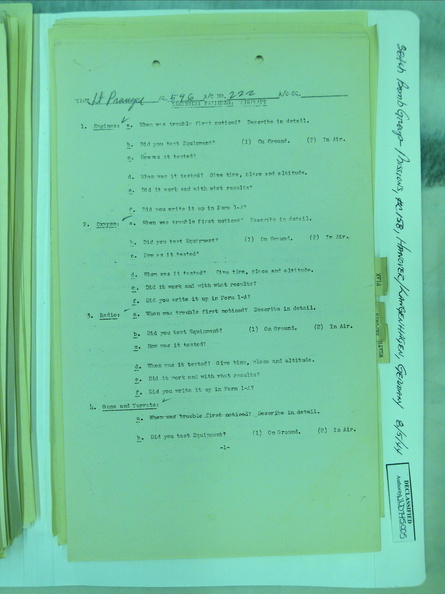 Lt Prange 596 NO. 222 A/C
TECHNICAL FAILURES, AIRCRAFT
1. Engines: a. When was trouble first noticed? Describe in detail.
b. Did you test Equipment? (1) On Ground. (2) In Air.
c. How was it tested?
d. When was it tested? Give time, place and altitude.
e. Did it work and with what results?
f. Did you write it up in Form 1-A?
2. Oxygen: a. When was trouble first noticed? Describe in detail.
b. Did you test Equipment? (1) On Ground. (2) In Air.
c. How was it tested?
d. When was it tested? Give time, place and altitude.
e. Did it work and with what results?
f. Did you write it up in Form 1-A?
3. Radio: a. When was trouble first noticed? Describe in detail.
b. Did you test Equipment? (1) On Ground. (2) In Air.
c. How was it tested?
d. When was it tested? Give time, place and altitude.
e. Did it work and with what results?
f. Did you write it up in Form 1-A?
4. Guns and Turrets:
a. When was trouble first noticed? Describe in detail.
b. Did you test Equipment? (1) On Ground. (2) In Air.
-1-
Bomb Group Missions, Bx 158, Hanover/Langenhagen, Germany 8/5/44
DECLASSIFIED
Authority NND745005